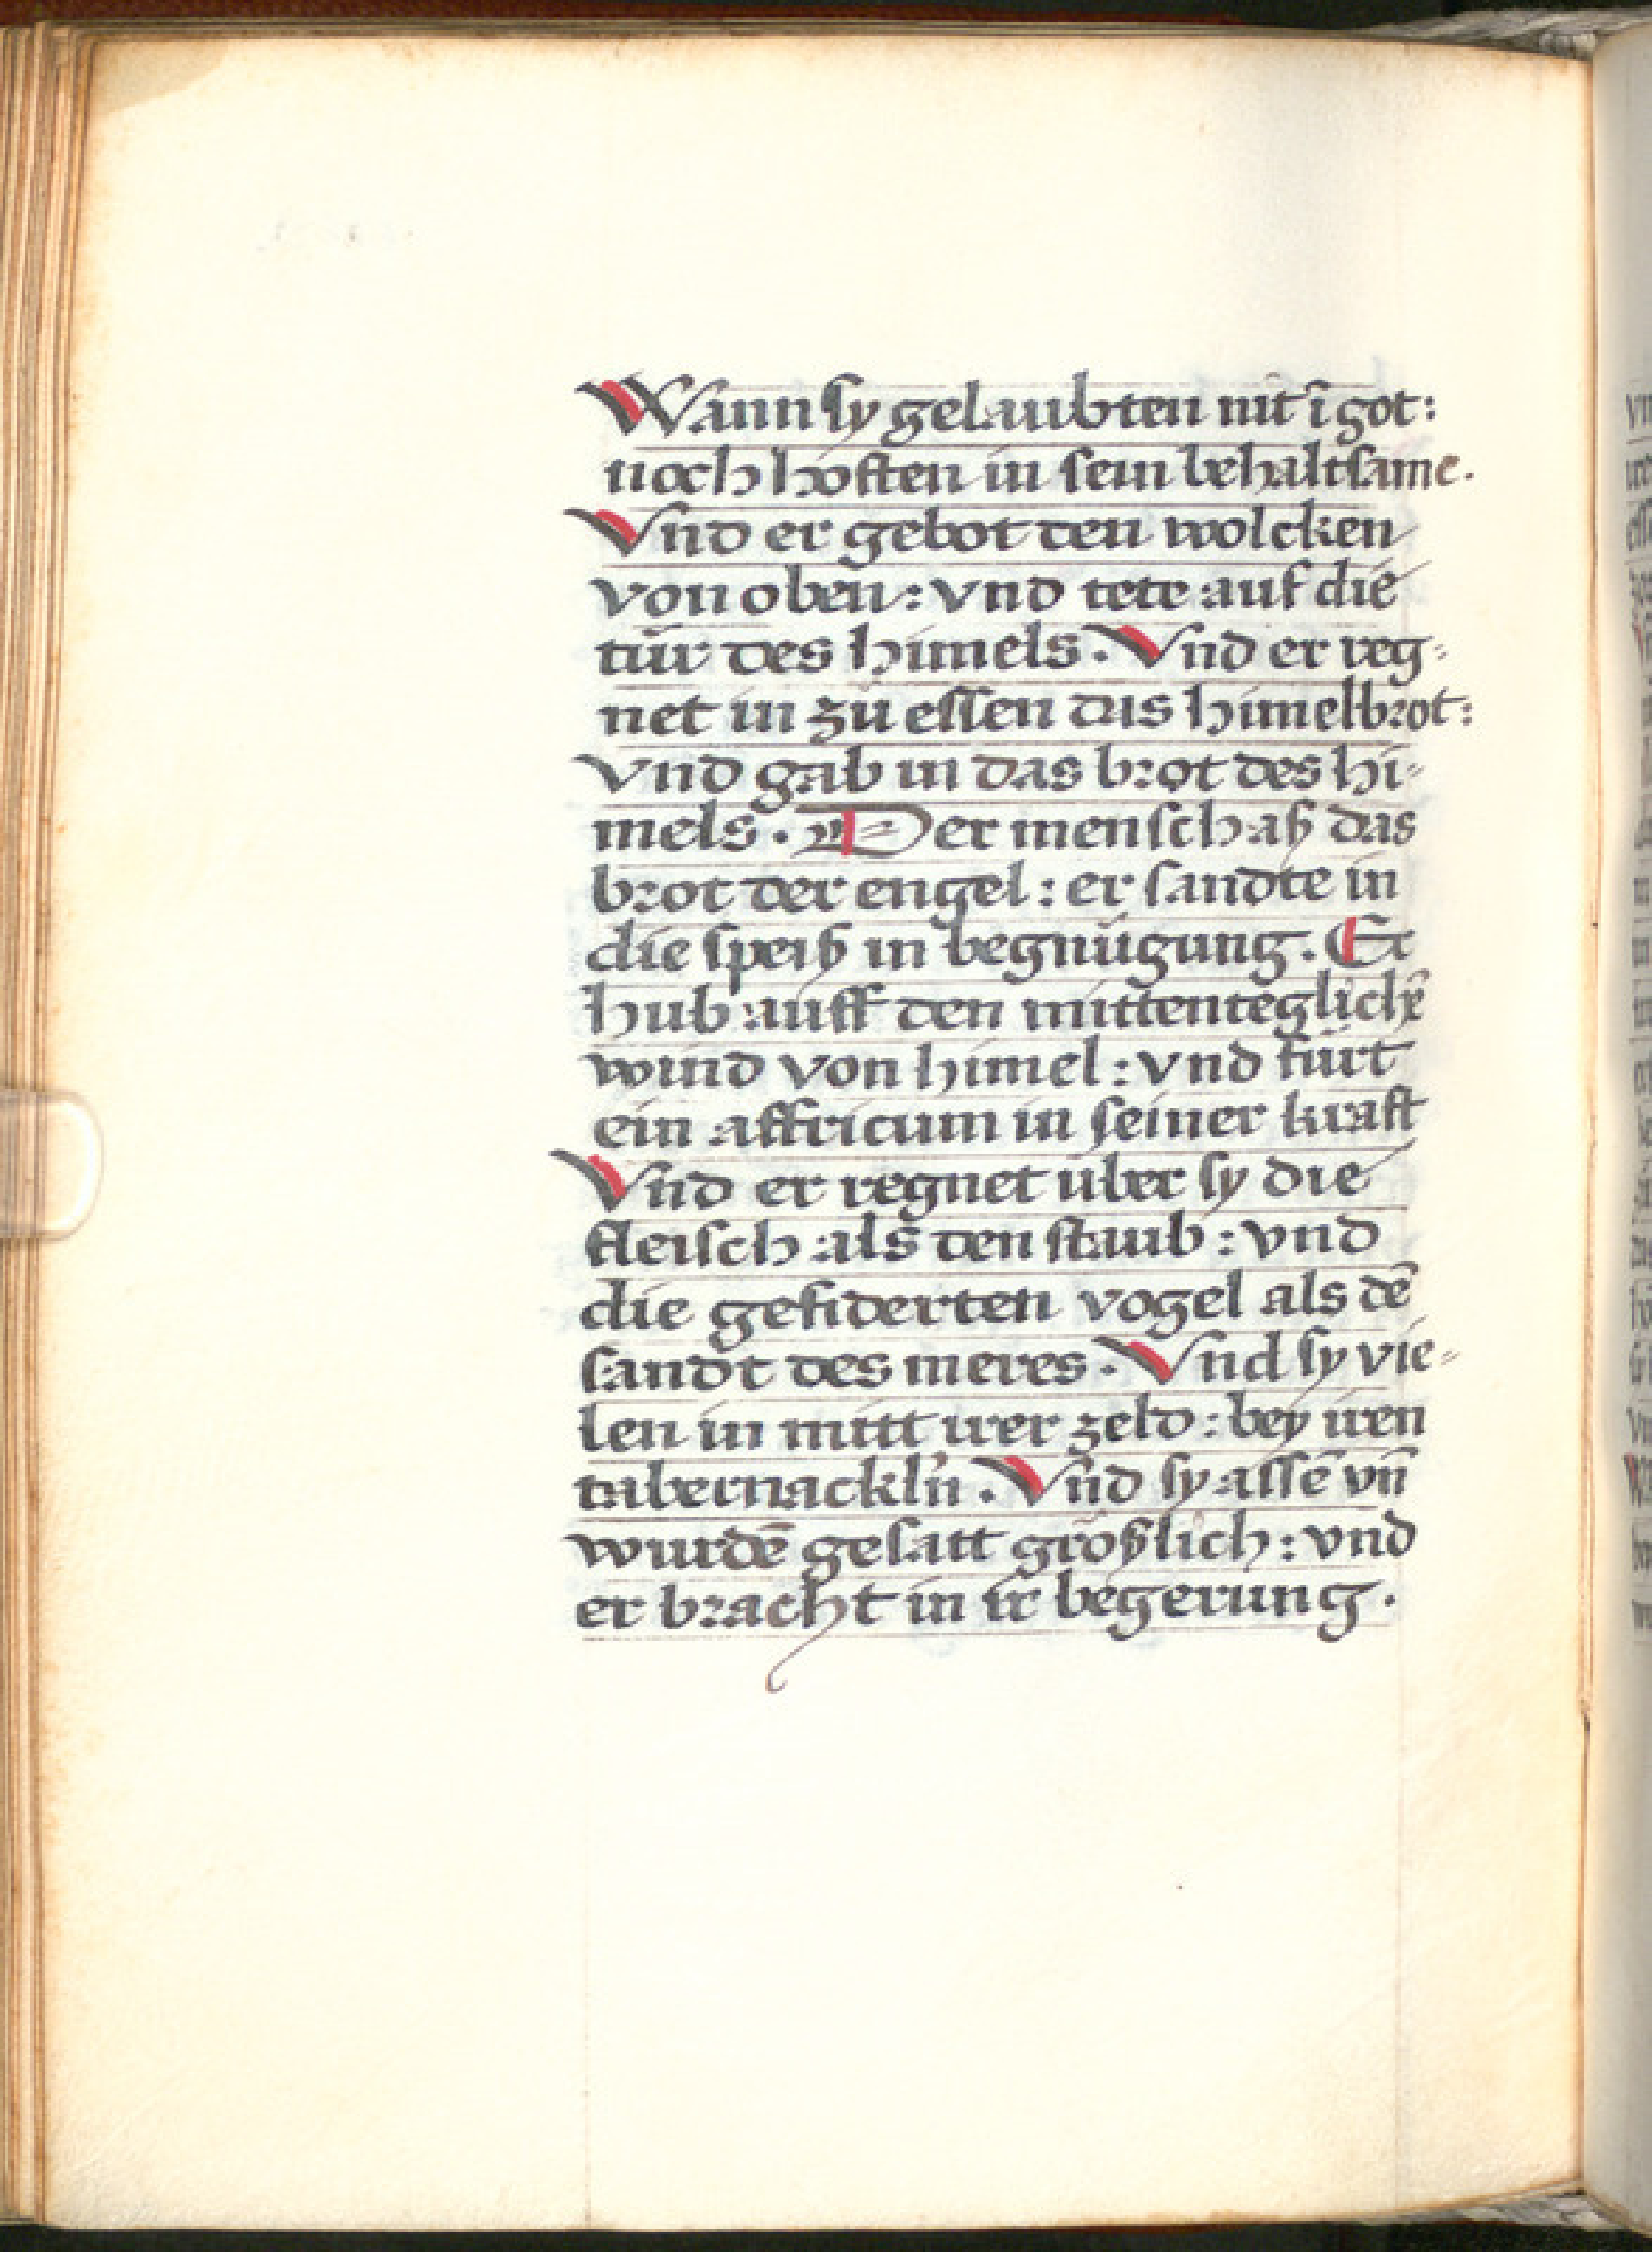 Wann sy gelaubten nit ī got:
noch hoften in sein behaltsame.
Vnd er gebot den wolcken
von oben: vnd tete auf die
tür des himels. Vnd er reg⸗
net in zů essen das himelbrot:
vnd gab in das brot des hi⸗
mels. Der mensch aß das
brot der engel: er sandte in
die speiß in begnügung. Er
hub auff den mittenteglichē
wind von himel: vnd fürt
ein affricum in seiner kraft
Vnd er regnet über sy die
fleisch als den staub: vnd
die gefiderten vogel als dē
sandt des meres. Vnd sy vie⸗
len in mitt irer zeld: bey iren
tabernackln. Vnd sy assē vn̄
wurdē gesatt größlich: vnd
er bracht in ir begerung.